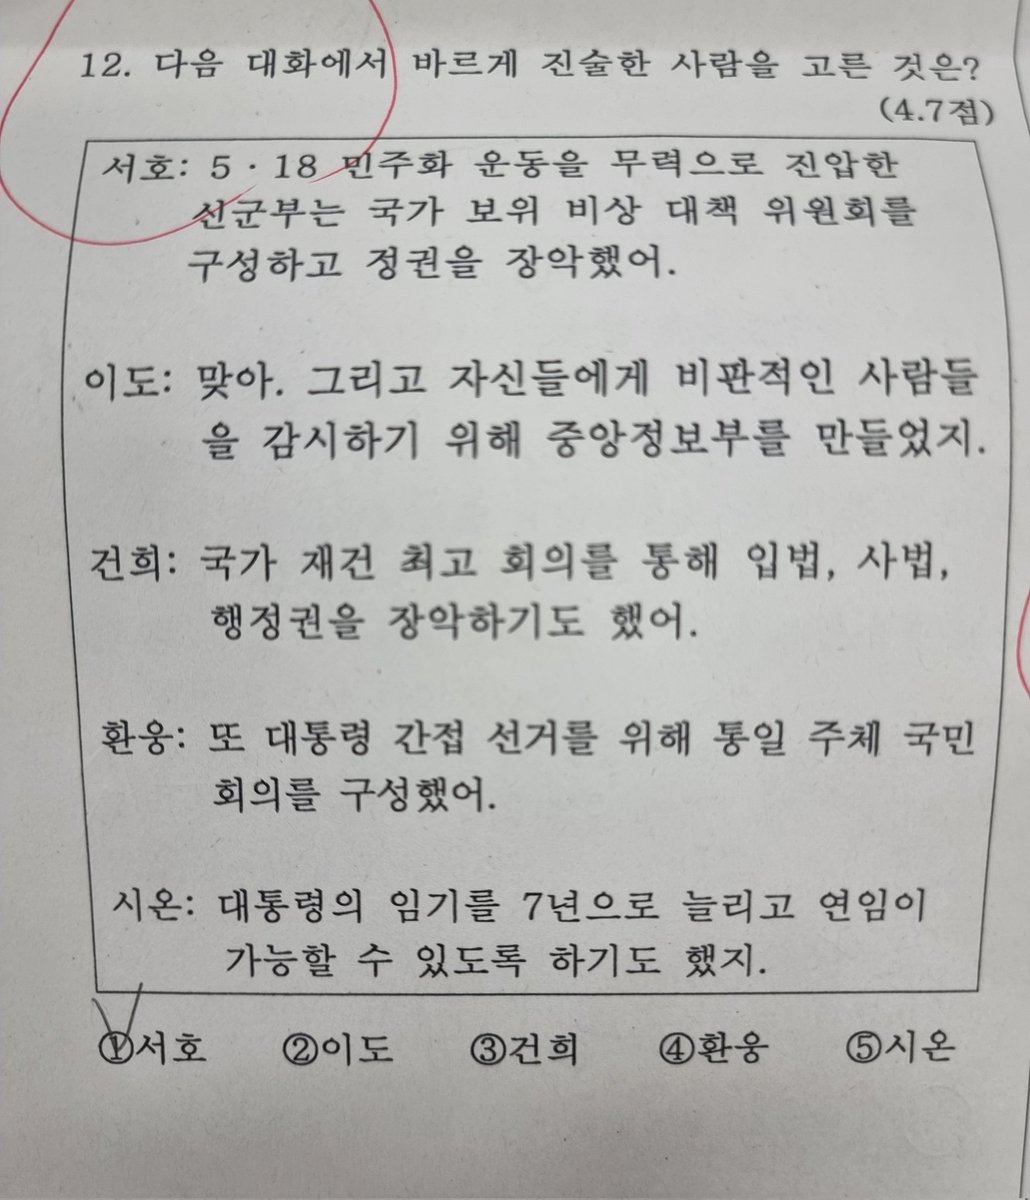 12. 다음 대화에서 바르게 진술한 사람을 고른 것은?
(4.7점)
서호: 5·18 민주화 운동을 무력으로 진압한
신군부는 국가 보위 비상 대책 위원회를
구성하고 정권을 장악했어.
이도: 맞아. 그리고 자신들에게 비판적인 사람들
을 감시하기 위해 중앙정보부를 만들었지.
건희: 국가 재건 최고 회의를 통해 입법, 사법,
행정권을 장악하기도 했어.
환웅: 또 대통령 간접 선거를 위해 통일 주체 국민
회의를 구성했어.
시온: 대통령의 임기를 7년으로 늘리고 연임이
가능할 수 있도록 하기도 했지.
①서호 ②이도 ③건희 ④환웅 ⑤시온